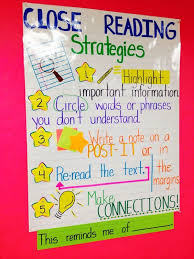 CLOSE READING
Strategies
1 Highlight
important information.
2 Circle words or phrases
you don't understand.
3 Write a note on a
POST-IT or in
the margins
4 Re-read the text.
5 Make
CONNECTIONS!
This reminds me of